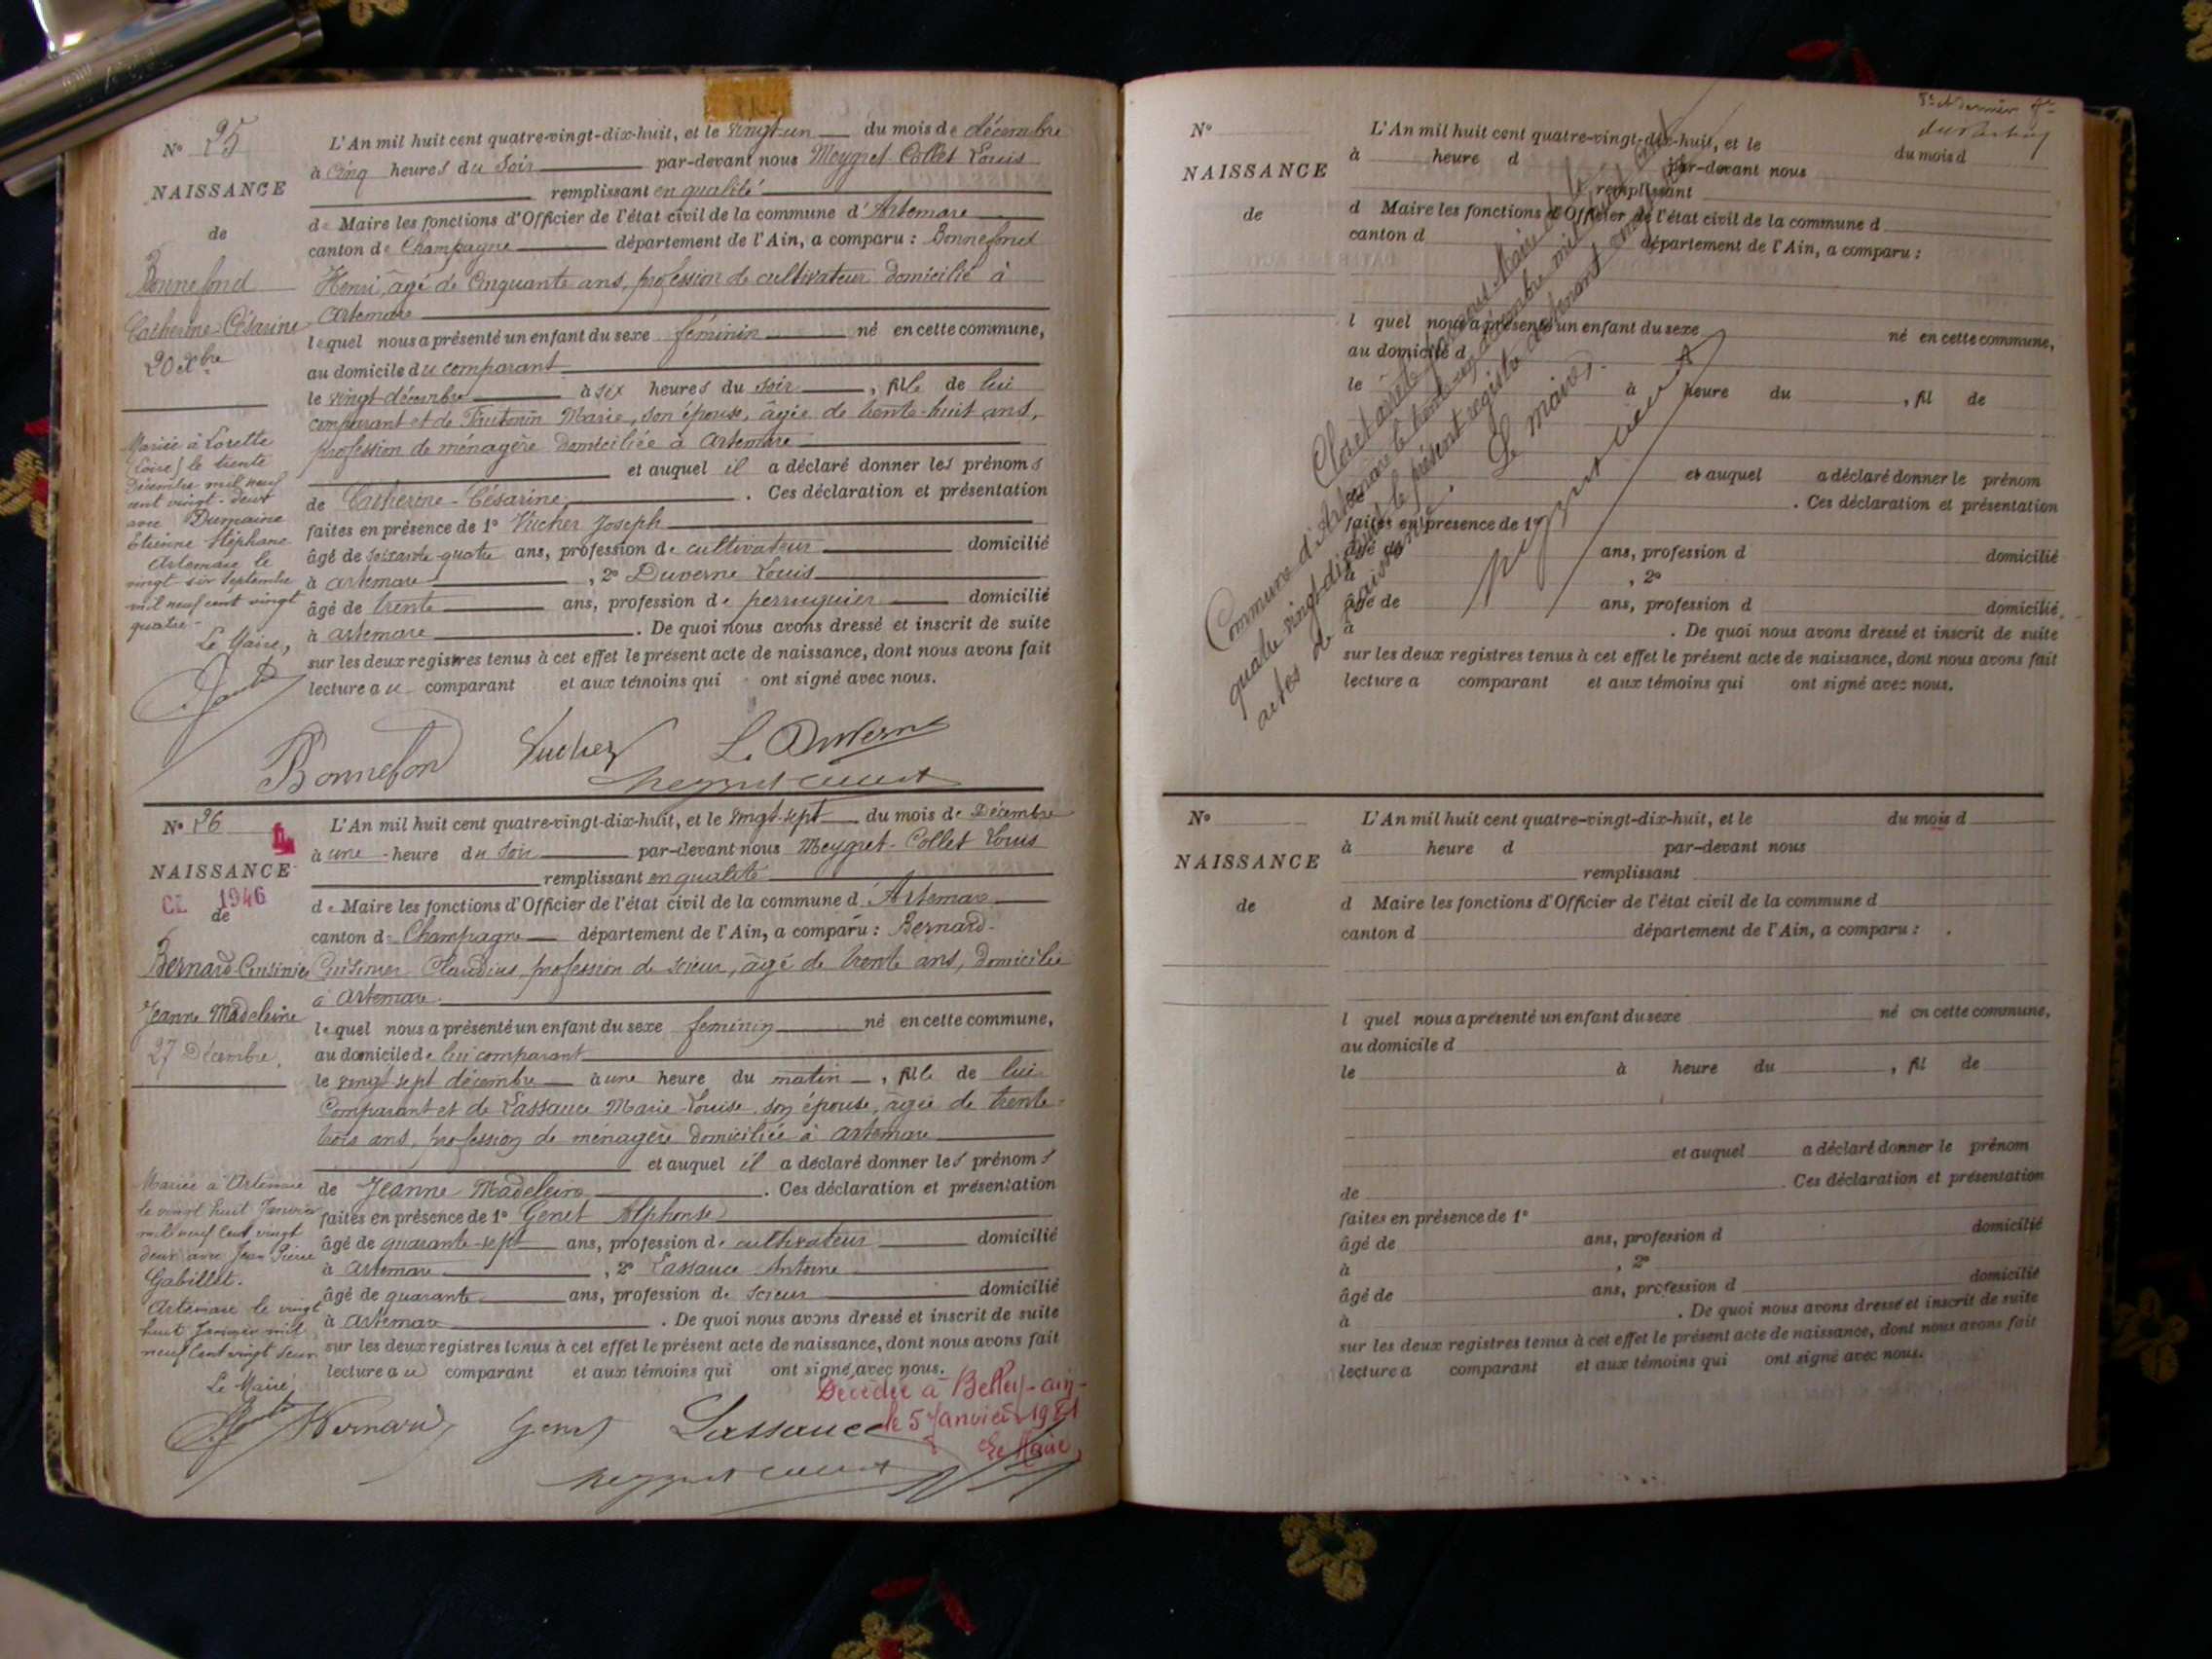 N° 25
NAISSANCE
de
Bonnefond
Catherine-Césarine
20 Xbre
Mariée à Lorette
(Loire) le trente
Décembre mil neuf
cent vingt-deux
avec Dumaine
Etienne Stéphane
Artemare le
vingt six Septembre
mil neuf cent vingt
quatre-
Le Maire,
L'An mil huit cent quatre-vingt-dix-huit, et le vingt-un du mois de décembre
à Cinq heures du soir par-devant nous Meygret-Collet Louis
remplissant en qualité
de Maire les fonctions d'Officier de l'état civil de la commune d'Artemare
canton de Champagne département de l'Ain, a comparu : Bonnefond
Henri, âgé de Cinquante ans, profession de cultivateur domicilié à
Artemare
lequel nous a présenté un enfant du sexe féminin né en cette commune,
au domicile du comparant
le vingt décembre à six heures du soir, fille de lui
comparant et de Marie, son épouse, âgée de trente-huit ans,
profession de ménagère domiciliée à Artemare
et auquel il a déclaré donner les prénoms
de Catherine-Césarine. Ces déclaration et présentation
faites en présence de 1° Vucher Joseph
âgé de soixante-quatre ans, profession de cultivateur domicilié
à Artemare, 2° Duverne Louis
âgé de trente ans, profession de perruquier domicilié
à Artemare. De quoi nous avons dressé et inscrit de suite
sur les deux registres tenus à cet effet le présent acte de naissance, dont nous avons fait
lecture au comparant et aux témoins qui ont signé avec nous.
Bonnefond Vucher L. Duverne
Meygret Collet
N° 26
NAISSANCE
CL 1946
de
Bernard-Cuisinier
Jeanne Madeleine
27 Décembre.
Mariée à Artemare
le vingt huit Janvier
mil neuf cent vingt
deux avec Jean Pierre
Gabillet.
Artemare le vingt
huit Janvier mil
neuf cent vingt deux
Le Maire,
L'An mil huit cent quatre-vingt-dix-huit, et le vingt-sept du mois de Décembre
à une heure du soir par-devant nous Meygret-Collet Louis
remplissant en qualité
de Maire les fonctions d'Officier de l'état civil de la commune d'Artemare
canton de Champagne département de l'Ain, a comparu : Bernard-
Cuisinier Claudius, profession de scieur, âgé de trente ans, domicilié
à Artemare.
lequel nous a présenté un enfant du sexe féminin né en cette commune,
au domicile de lui comparant
le vingt sept décembre à une heure du matin, fille de lui
Comparant et de Lassauce Marie-Louise, son épouse, âgée de trente-
trois ans, profession de ménagère domiciliée à Artemare
et auquel il a déclaré donner les prénoms
de Jeanne Madeleine. Ces déclaration et présentation
faites en présence de 1° Genet Alphonse
âgé de quarante-sept ans, profession de cultivateur domicilié
à Artemare, 2° Lassauce Antoine
âgé de quarante ans, profession de scieur domicilié
à Artemare. De quoi nous avons dressé et inscrit de suite
sur les deux registres tenus à cet effet le présent acte de naissance, dont nous avons fait
lecture au comparant et aux témoins qui ont signé avec nous.
Décédée à Belley-ain-
le 5 Janvier 1981
Le Maire,
Bernard Genet Lassauce
Meygret Collet
N°
NAISSANCE
de
L'An mil huit cent quatre-vingt-dix-huit, et le du mois d
à heure d par-devant nous
remplissant
d Maire les fonctions d'Officier de l'état civil de la commune d
canton d département de l'Ain, a comparu :
l quel nous a présenté un enfant du sexe né en cette commune,
au domicile d
le à heure du , fil de
et auquel a déclaré donner le prénom
de . Ces déclaration et présentation
faites en présence de 1°
âgé de ans, profession d domicilié
à , 2°
âgé de ans, profession d domicilié
à . De quoi nous avons dressé et inscrit de suite
sur les deux registres tenus à cet effet le présent acte de naissance, dont nous avons fait
lecture a comparant et aux témoins qui ont signé avec nous.
Clos et arrêté par nous Maire de la
Commune d'Artemare le trente-un décembre mil huit cent
quatre vingt-dix-huit le présent registre contenant
actes de naissance. Le maire,
Meygret Collet
N°
NAISSANCE
de
L'An mil huit cent quatre-vingt-dix-huit, et le du mois d
à heure d par-devant nous
remplissant
d Maire les fonctions d'Officier de l'état civil de la commune d
canton d département de l'Ain, a comparu :
l quel nous a présenté un enfant du sexe né en cette commune,
au domicile d
le à heure du , fil de
et auquel a déclaré donner le prénom
de . Ces déclaration et présentation
faites en présence de 1°
âgé de ans, profession d domicilié
à , 2°
âgé de ans, profession d domicilié
à . De quoi nous avons dressé et inscrit de suite
sur les deux registres tenus à cet effet le présent acte de naissance, dont nous avons fait
lecture a comparant et aux témoins qui ont signé avec nous.